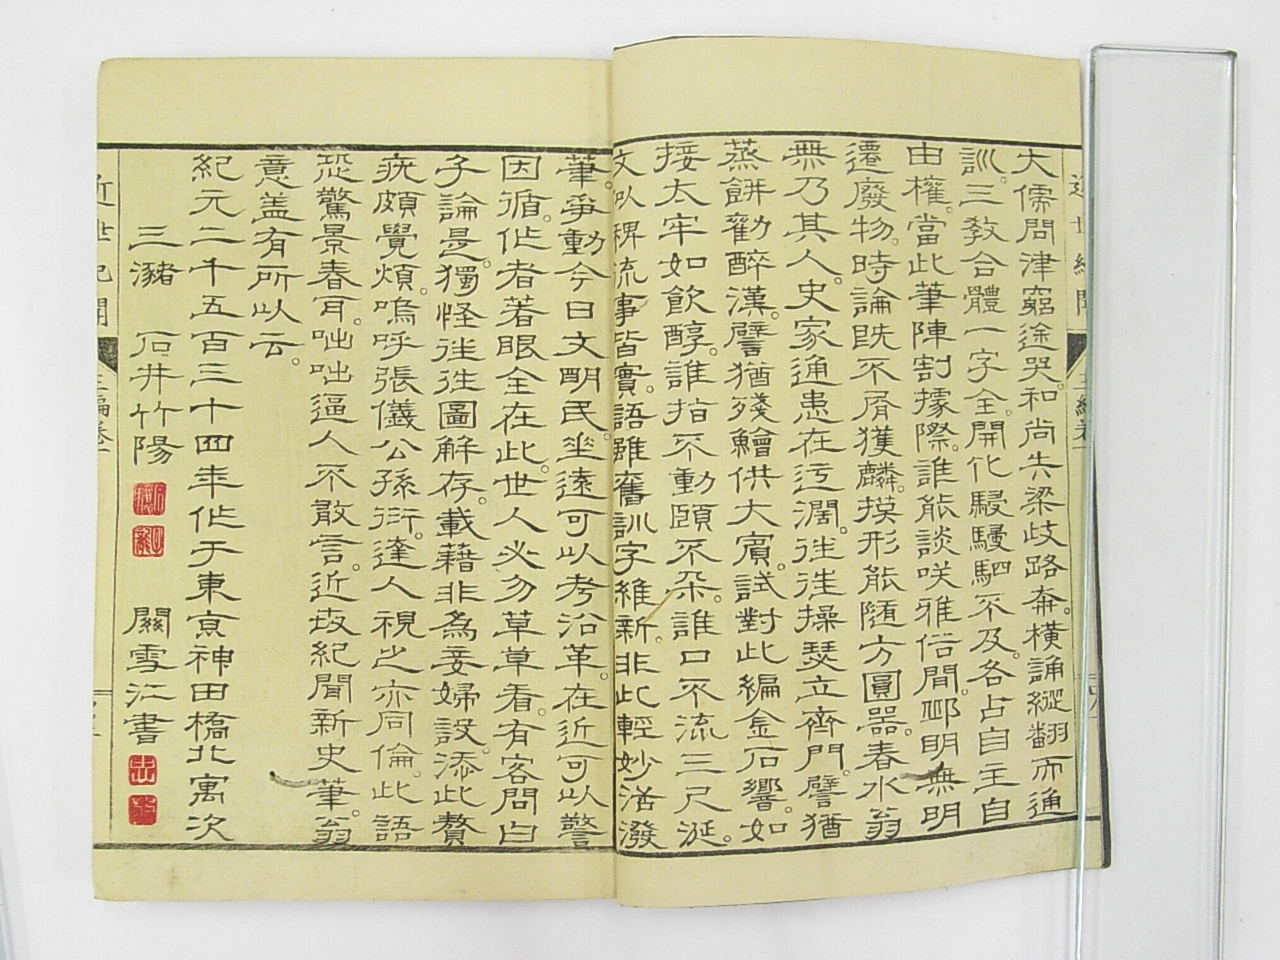 大儒問津窮途哭。和尚失梁歧路奔。橫誦縱翻而通
訓。三教合體一字全。開化駸駸駟不及。各占自主自
由權。當此筆陣割據際。誰能談咲雅俗間。鄙明無明
遷廢物。時論既不屑獲麟。摸形能隨方圓器。春水翁
無乃其人。史家通患在迂濶。往往操瑟立齊門。譬猶
蒸餅勸醉漢。譬猶殘鱠供大賓。試對此編金石響。如
接太牢如飲醇。誰指不動頤不朵。誰口不流三尺涎。
文似稗流事皆實。語雖舊訓字維新。非此輕妙活潑
筆。爭動今日文明民。坐遠可以考沿革。在近可以警
因循。作者著眼全在此。世人必勿草草看。有客問白
子論是。獨怪往往圖解存。載藉非爲妾婦設。添此贅
疣頗覺煩。嗚呼張儀公孫衍。達人視之亦同倫。此語
恐驚景春耳。咄咄逼人不敢言。近古紀聞新史筆。翁
意盖有所以云。
紀元二千五百三十四年作于東京神田橋北寓次
三瀦 石井竹陽
關雪江書
近世紀聞